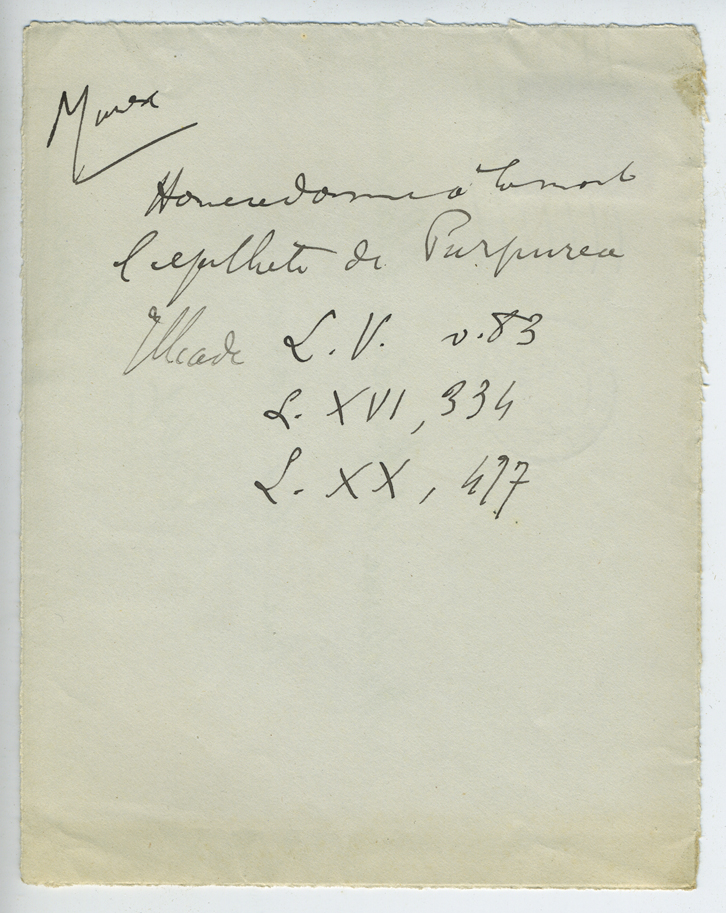 Murex
Homere donne a la mort
l'epithete de Purpurea
Illiade L. V. v. 83
L. XVI, 334
L. XX, 477